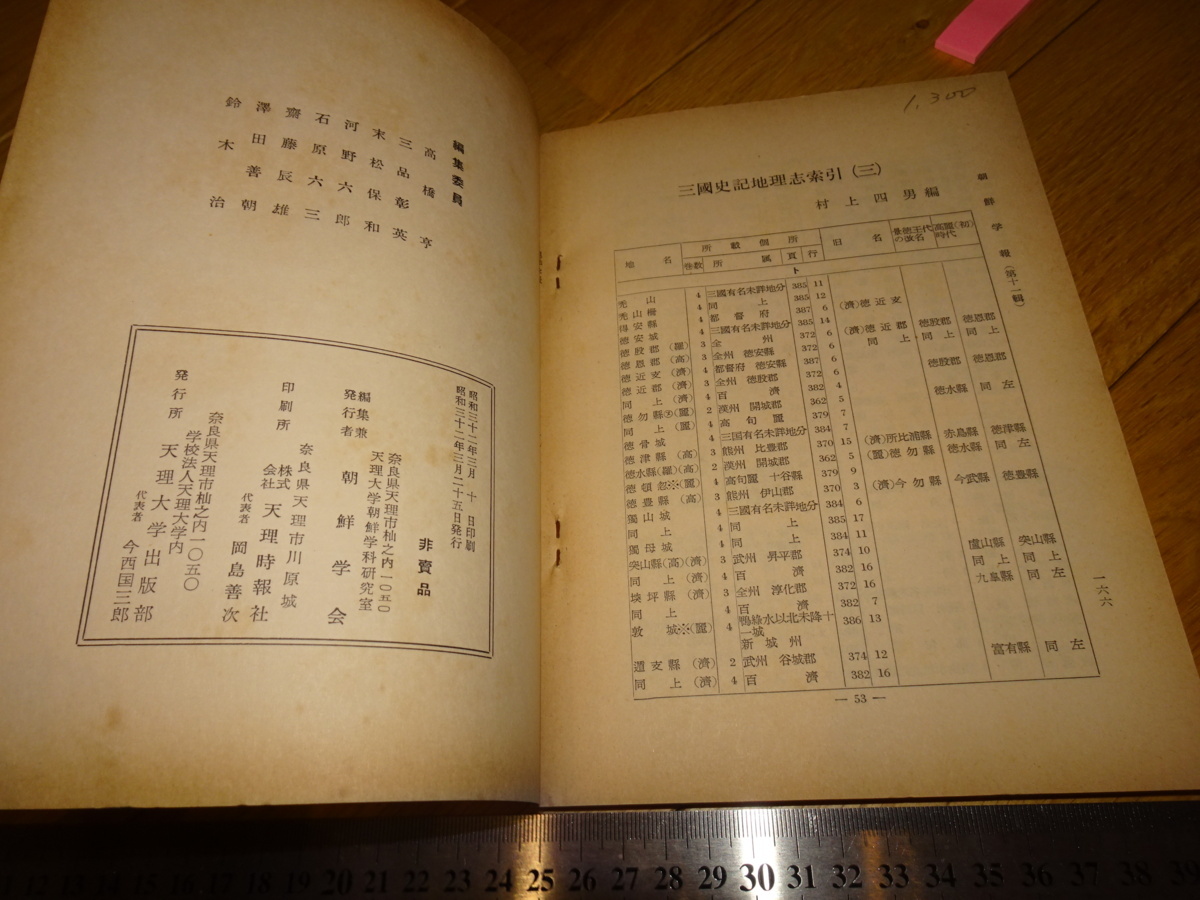 編集委員
高橋亨
三品彰英
末松保和
河野六郎
石原六三
齋藤辰雄
澤田善朝
鈴木治
昭和三十二年三月十日印刷
昭和三十二年三月二十五日発行
非賣品
奈良県天理市杣之内一〇五〇
天理大学朝鮮学科研究室
編集兼
発行者 朝鮮学会
奈良県天理市川原城
印刷所 株式会社 天理時報社
代表者 岡島善次
奈良県天理市杣之内一〇五〇
学校法人天理大学内
発行所 天理大学出版部
代表者 今西国三郎
1,300
朝鮮学報(第十一輯)
一六六
三國史記地理志索引(三)
村上四男編
地名 所載個所 旧名 景徳王代の改名 高麗(初)時代
巻数 所属 頁 行
ト
禿山 4 三國有名未詳地分 385 11
禿山柵 4 同上 385 12
得安縣 4 都督府 387 6 (濟)徳近支
徳安城 4 三國有名未詳地分 385 14
徳殷郡(羅) 3 全州 372 6 (濟)徳近郡 徳殷郡 徳恩郡
徳恩郡(高) 3 全州 徳安縣 372 6 同上 同上 同上
徳近支(濟) 4 都督府 徳安縣 387 6
徳近郡(濟) 3 全州 徳殷郡 372 6 徳殷郡 徳恩郡
同上(濟) 4 百濟 382 4
徳勿縣②(麗) 2 漢州 開城郡 362 5 徳水縣 同左
同上(麗) 4 高句麗 379 7
徳骨城 4 三国有名未詳地分 384 7
徳津縣(高) 3 熊州 比豊郡 370 15 (濟)所比浦縣 赤烏縣 徳津縣
徳水縣(羅)(高) 2 漢州 開城郡 362 5 (麗)徳勿縣 徳水縣 同左
徳頓忽※(麗) 4 高句麗 十谷縣 379 9
徳豊縣(高) 3 熊州 伊山郡 370 3 (濟)今勿縣 今武縣 徳豊縣
獨山城 4 三國有名未詳地分 384 6
同上 4 同上 385 17
獨母城 4 同上 384 11
突山縣(高)(濟) 3 武州 昇平郡 374 10 盧山縣 突山縣
同上(濟) 4 百濟 382 16 同上 同上
堗坪縣(濟) 3 全州 淳化郡 372 16 九皐縣 同左
同上 4 百濟 382 7
敦城※(麗) 4 鴨綠水以北未降十一城 386 13
新城州
遁支縣(濟) 2 武州 谷城郡 374 12 富有縣 同左
同上(濟) 4 百濟 382 16
— 53 —
12 13 14 15 16 17 18 19 20 21 22 23 24 25 26 27 28 29 30 31 32 33 34 35 36 37 38 39